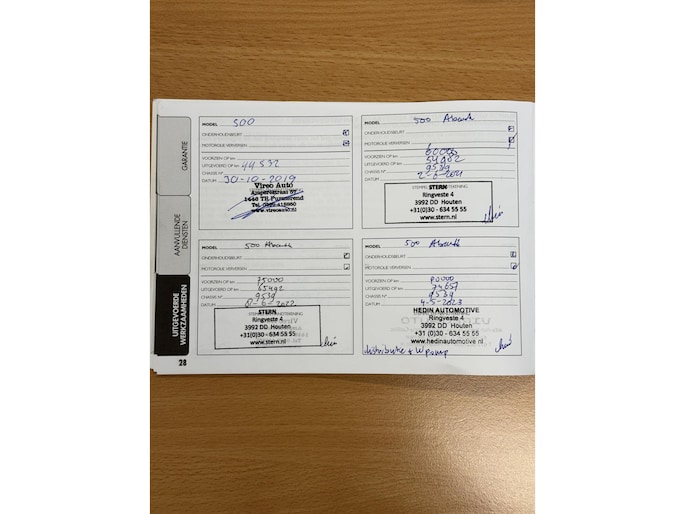 GARANTIE
AANVULLENDE
DIENSTEN
UITGEVOERDE
WERKZAAMHEDEN
28
MODEL 500
ONDERHOUDSBEURT
MOTOROLIE VERVERSEN
VOORZIEN OP km
UITGEVOERD OP km 44532
CHASSIS N°
DATUM 30-10-2019
Vireo Auto
1446 TR Purmerend
www.vireoauto.nl
MODEL 500 Abarth
ONDERHOUDSBEURT
MOTOROLIE VERVERSEN
VOORZIEN OP km 60000
UITGEVOERD OP km 54982
CHASSIS N° 9539
DATUM 2-6-2021
STERN
Ringveste 4
3992 DD Houten
+31(0)30 - 634 55 55
www.stern.nl
MODEL 500 Abarth
ONDERHOUDSBEURT
MOTOROLIE VERVERSEN
VOORZIEN OP km 75000
UITGEVOERD OP km 65492
CHASSIS N° 9539
DATUM 8-6-2022
STERN
Ringveste 4
3992 DD Houten
+31(0)30 - 634 55 55
www.stern.nl
MODEL 500 Abarth
ONDERHOUDSBEURT
MOTOROLIE VERVERSEN
VOORZIEN OP km 90000
UITGEVOERD OP km 74657
CHASSIS N° 9539
DATUM 4-5-2023
HEDIN AUTOMOTIVE
Ringveste 4
3992 DD Houten
+31(0)30 - 634 55 55
www.hedinautomotive.nl
distributie + W pomp